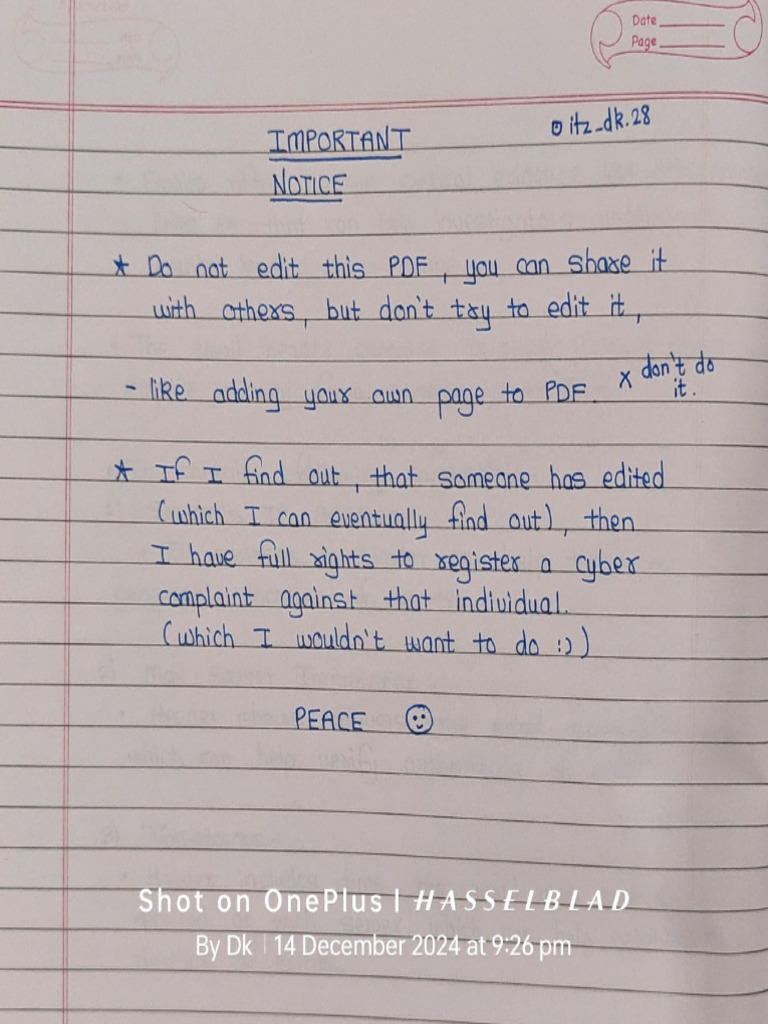 Date
Page
IMPORTANT
NOTICE
itz_dk.28
★ Do not edit this PDF, you can share it
with others, but don't try to edit it,
- like adding your own page to PDF. x don't do
it.
★ If I find out, that someone has edited
(which I can eventually find out), then
I have full rights to register a cyber
complaint against that individual.
(which I wouldn't want to do :))
PEACE
Shot on OnePlus | HASSELBLAD
By Dk | 14 December 2024 at 9:26 pm